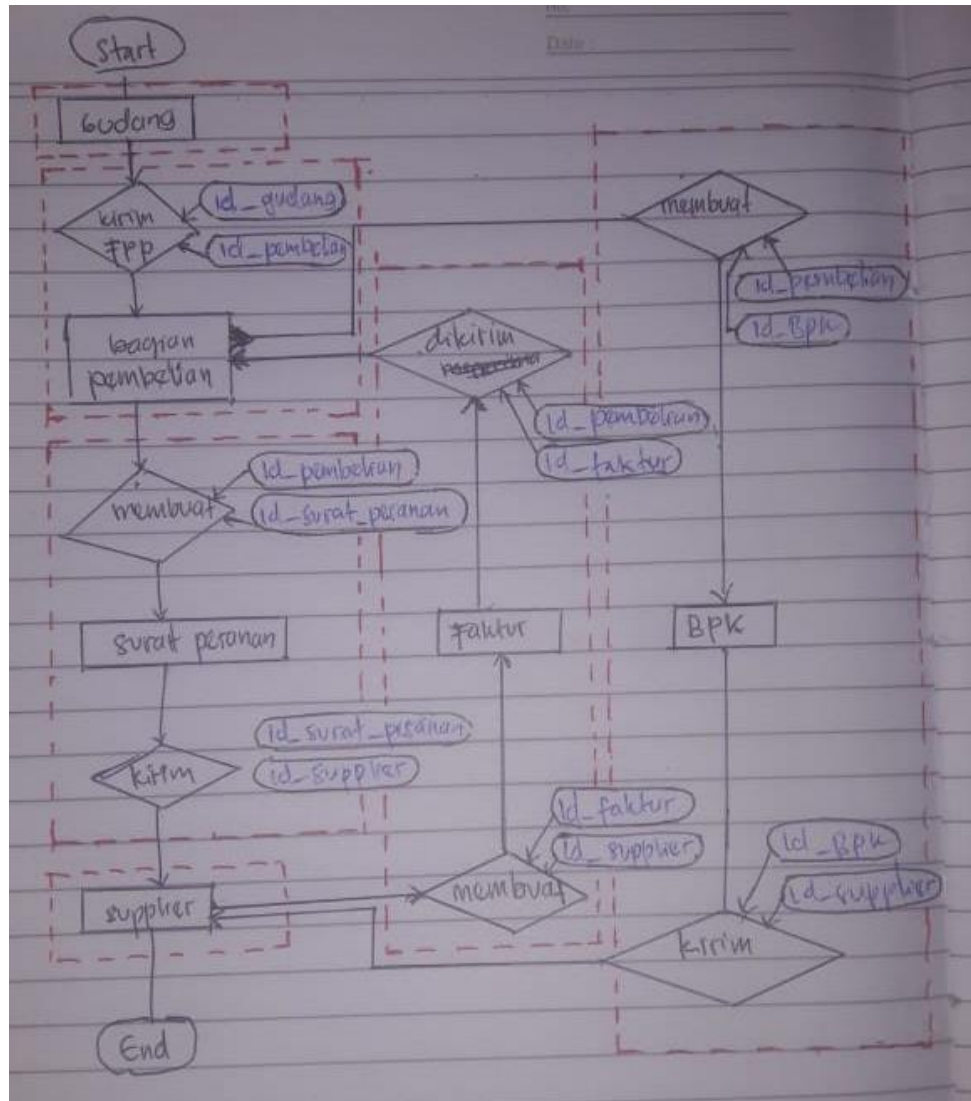 Date
Start
Gudang
kirim
FPP
id_gudang
id_pembelian
membuat
id_pembelian
id_BPK
bagian
pembelian
dikirim
id_pembelian
id_faktur
membuat
id_pembelian
id_surat_pesanan
surat pesanan
Faktur
BPK
kirim
id_surat_pesanan
id_supplier
id_faktur
id_supplier
membuat
id_BPK
id_supplier
kirim
supplier
End